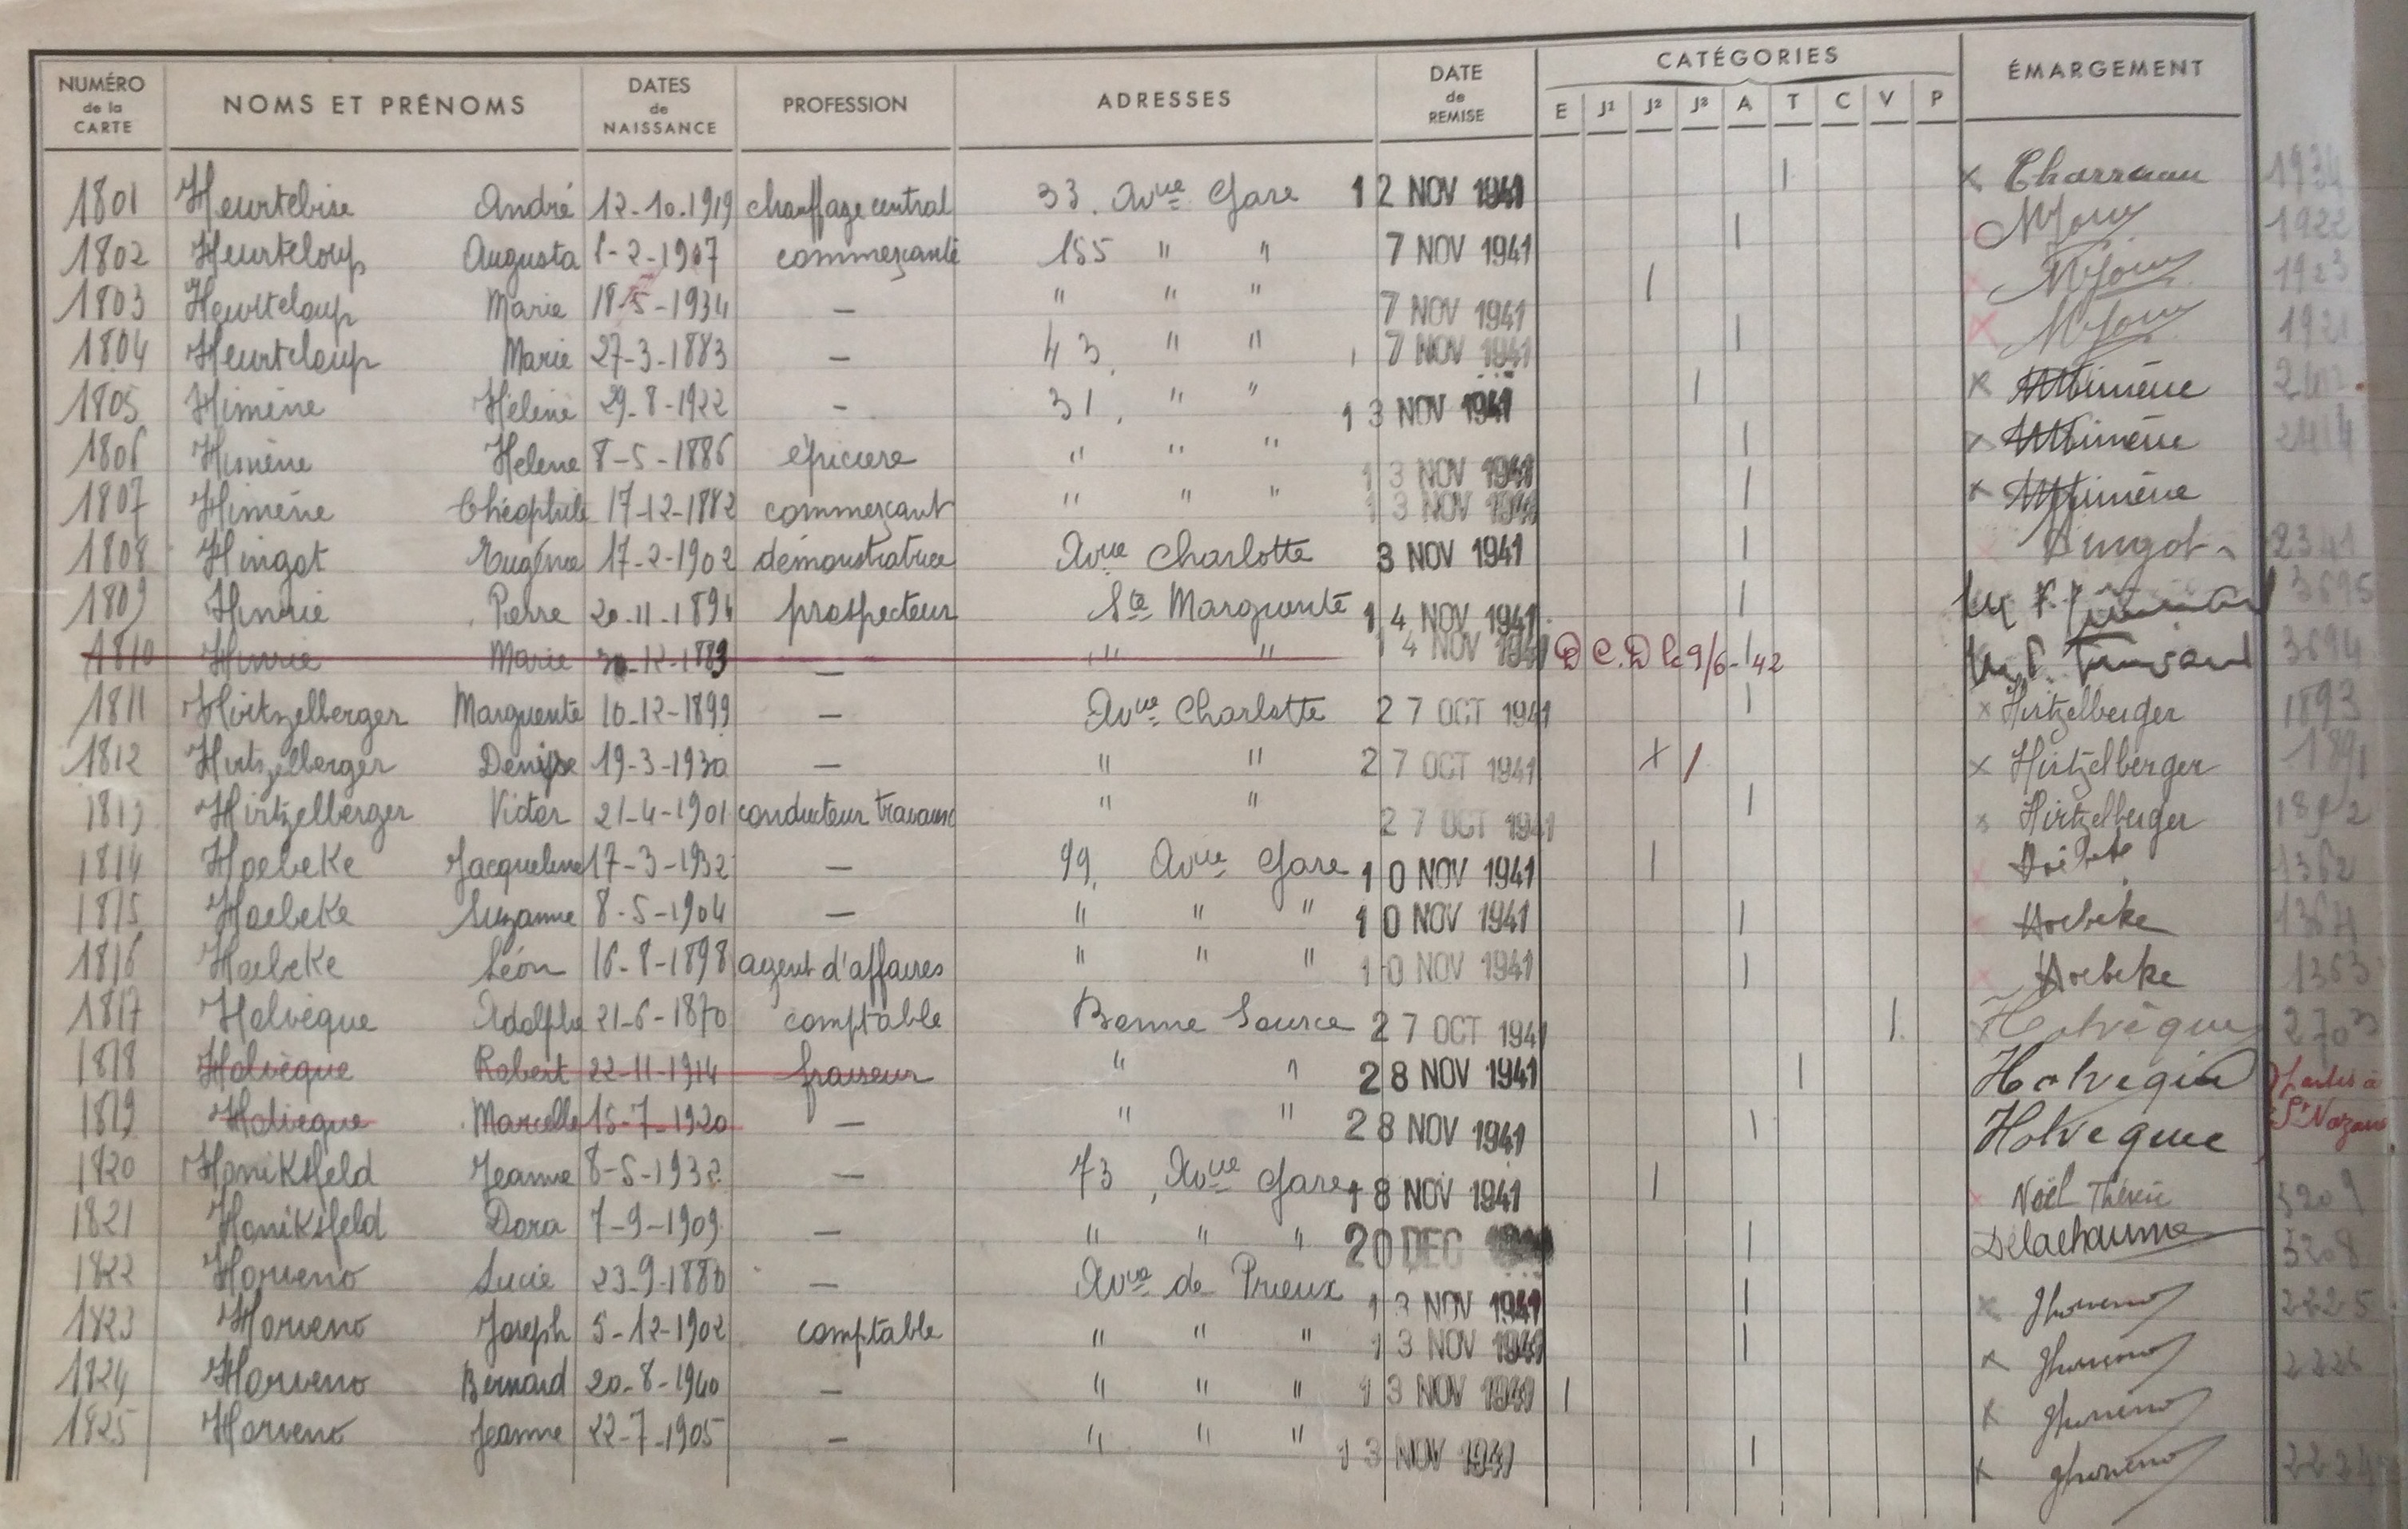 NUMÉRO de la CARTE NOMS ET PRÉNOMS DATES de NAISSANCE PROFESSION ADRESSES DATE de REMISE CATÉGORIES ÉMARGEMENT
E J1 J2 J3 A T C V P
1801 Heurtebise André 12-10-1919 chauffage central 33. Avue Gare 12 NOV 1941 | x Charreau 1934
1802 Heurteloup Augusta 1-2-1907 commerçante 155 " " 7 NOV 1941 | 1922
1803 Heurteloup Marie 18-5-1934 — " " " 7 NOV 1941 | 1923
1804 Heurteloup Marie 27-3-1883 — 43, " " 7 NOV 1941 | x 1921
1805 Himène Hélène 29-8-1922 — 31, " " 13 NOV 1941 | x Himène
1806 Himène Helene 8-5-1886 épicière " " " 13 NOV 1941 | x Himène 2414
1807 Himène Théophile 17-12-1882 commerçant " " " 13 NOV 1941 | x Himène
1808 Hingot Eugénie 17-2-1902 démonstratrice Avue Charlotte 3 NOV 1941 | Hingot 2341
1809 Hinrie Pierre 20-11-1894 prospecteur Ste Marguerite 14 NOV 1941 | 3695
1810 Hinrie Marie 30-12-1889 — " " 14 NOV 1941 DCD le 9/6-42 | 3694
1811 Hirtzelberger Marguerite 10-12-1899 — Avue Charlotte 27 OCT 1941 | x Hirtzelberger 1893
1812 Hirtzelberger Denise 19-3-1930 — " " 27 OCT 1941 x / x Hirtzelberger 1891
1813 Hirtzelberger Victor 21-4-1901 conducteur travaux " " 27 OCT 1941 | x Hirtzelberger 1892
1814 Hoebeke Jacqueline 17-3-1932 — 99, Avue Gare 10 NOV 1941 | x Hoebeke 1362
1815 Hoebeke Suzanne 8-5-1904 — " " " 10 NOV 1941 | x Hoebeke 1364
1816 Hoebeke Léon 16-8-1898 agent d'affaires " " " 10 NOV 1941 | x Hoebeke 1363
1817 Holvèque Adolphe 21-6-1870 comptable Bonne Source 27 OCT 1941 | x Holvèque 2703
1818 Holvèque Robert 22-11-1914 fraiseur " " 28 NOV 1941 | Holvèque partis à
1819 Holvèque Marcelle 15-7-1920 — " " 28 NOV 1941 | Holveque St Nazaire
1820 Honiksfeld Jeanne 8-5-1932 — 73, Avue Gare 18 NOV 1941 | x Noël 3209
1821 Honiksfeld Dora 7-9-1909 — " " " 20 DEC | Delachaume 3208
1822 Horveno Lucie 23-9-1880 — Avue de Prieux 13 NOV 1941 | x JHorveno 2225
1823 Horveno Joseph 5-12-1902 comptable " " " 13 NOV 1941 | x JHorveno 2226
1824 Horveno Bernard 20-8-1940 — " " " 13 NOV 1941 | x JHorveno
1825 Horveno Jeanne 22-7-1905 — " " " 13 NOV 1941 | x JHorveno